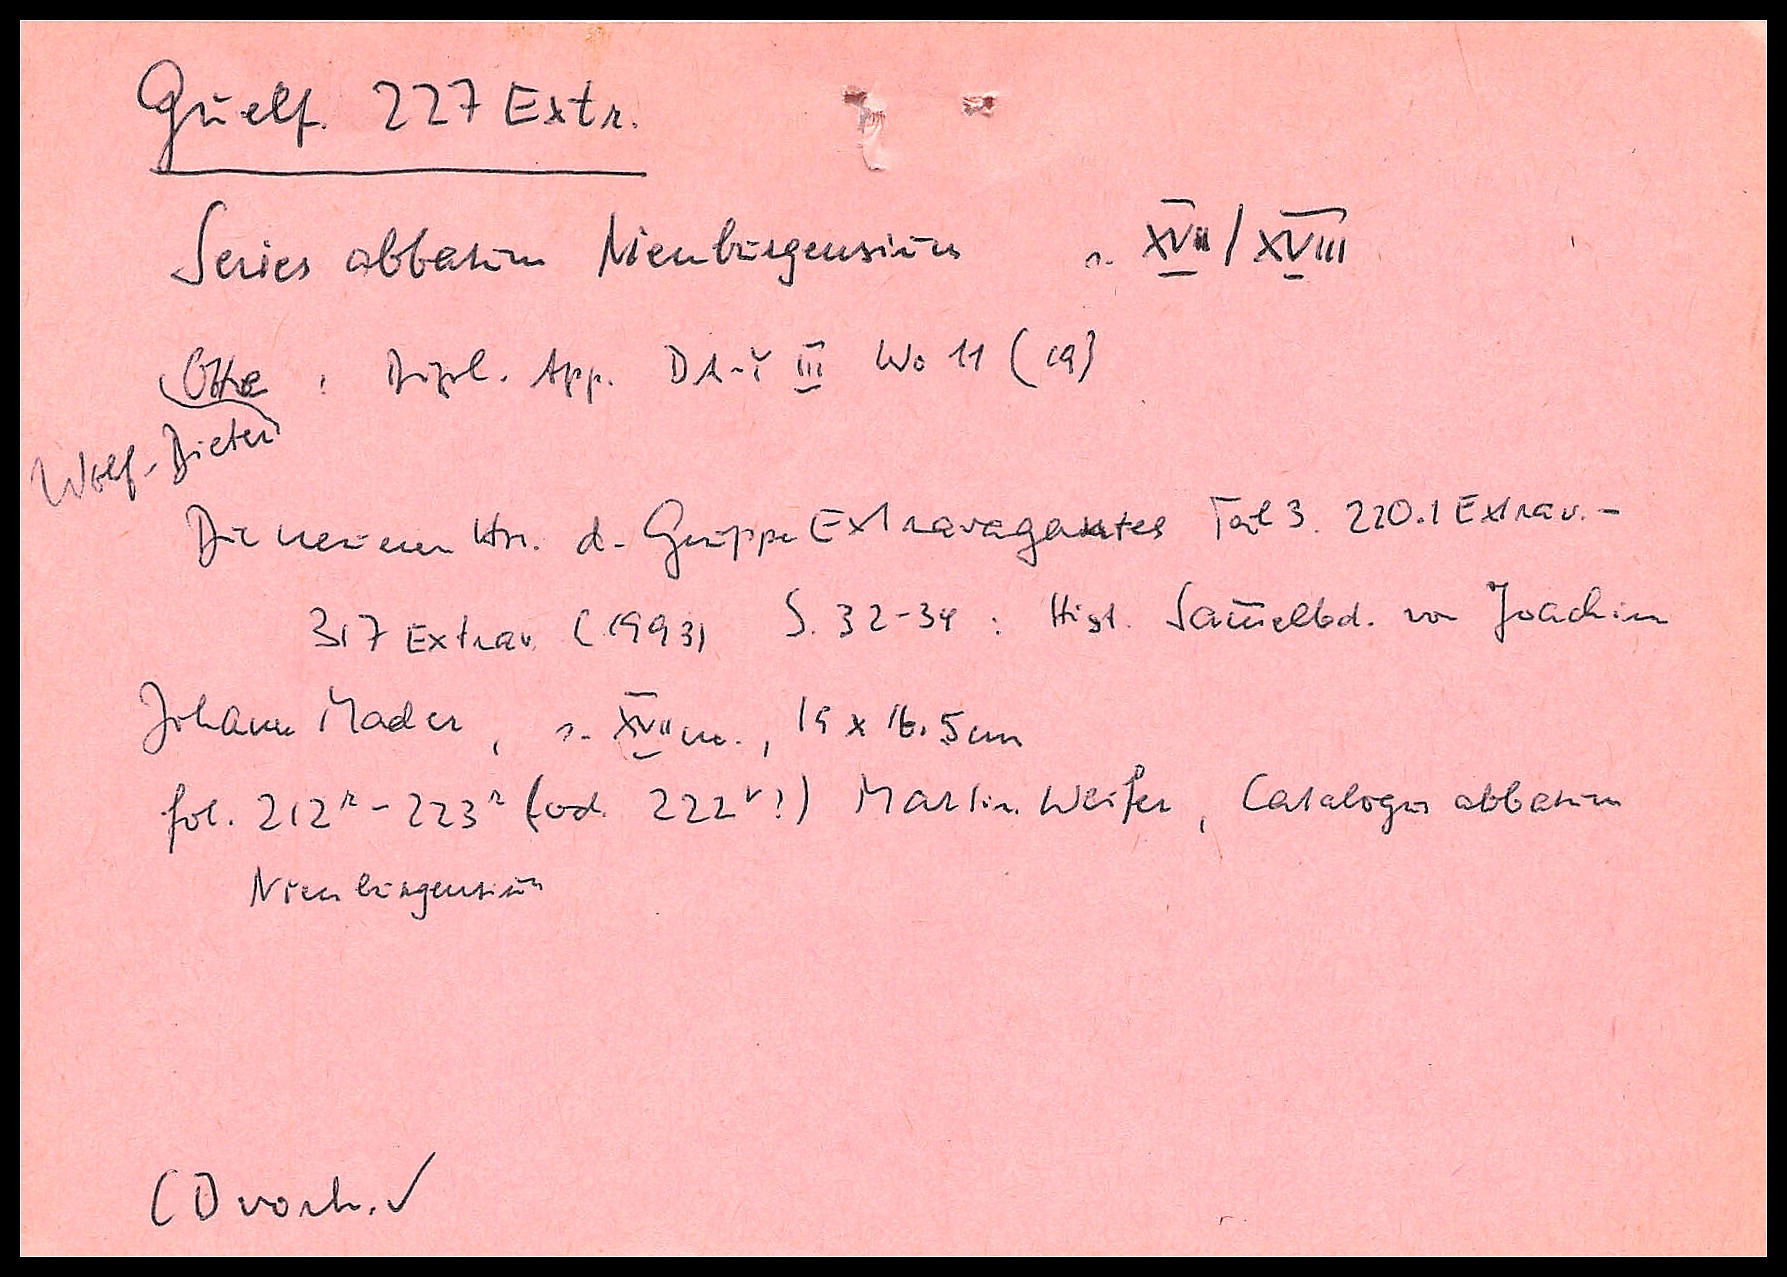 Guelf. 227 Extr.
Series abbatum Nienburgensium s. XVII/XVIII
Otte : Dipl. App. DA-Y III Wo 11 (19)
Wolf-Dieter
Die neueren Hss. d. Gruppe Extravagantes Teil 3. 220.1 Extrav. -
317 Extrav. (1993) S. 32-34 : Hist. Sam̄elbd. von Joachim
Johann Mader, s. XVII m., 19 x 16.5 cm
fol. 212r - 223r (od. 222v?) Martin. Weifer, Catalogus abbatum
Nienburgensium
CD vorh. ✓